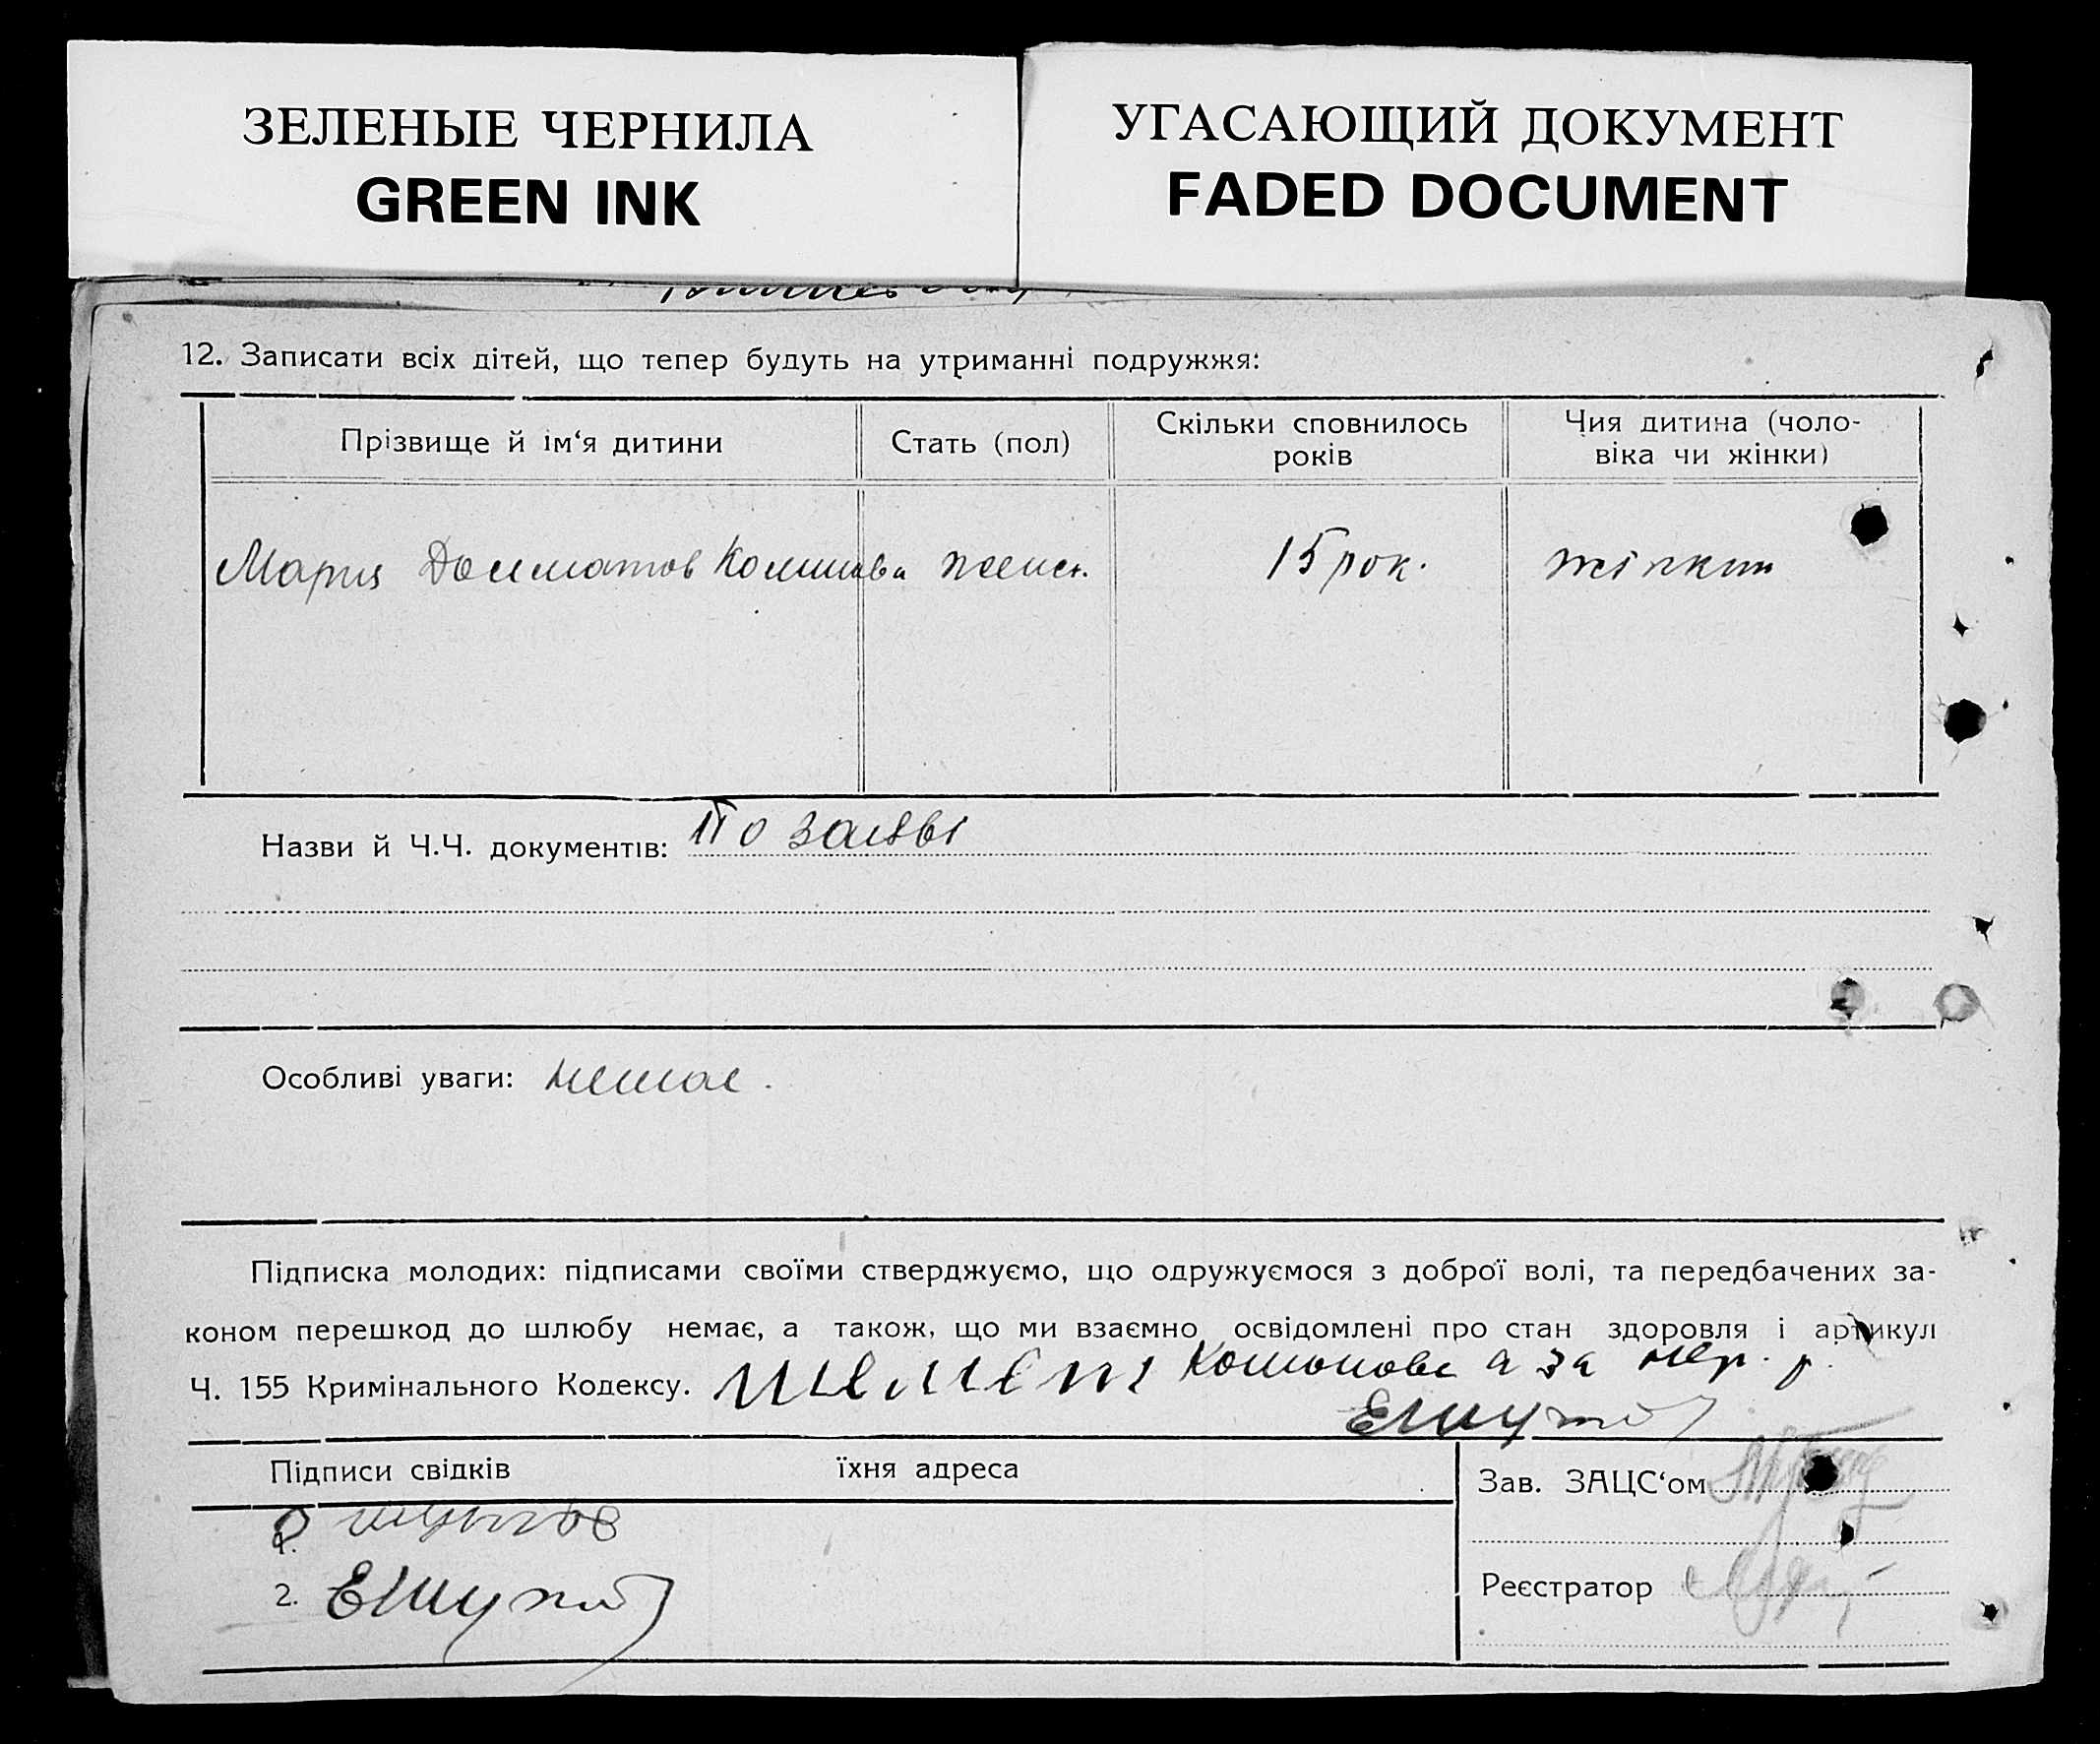 ЗЕЛЕНЫЕ ЧЕРНИЛА
GREEN INK
УГАСАЮЩИЙ ДОКУМЕНТ
FADED DOCUMENT
12. Записати всіх дітей, що тепер будуть на утриманні подружжя:
Прізвище й ім‘я дитини
Стать (пол)
Скільки сповнилось
років
Чия дитина (чоло-
віка чи жінки)
Мария женск. 15 рок. жінкин
Назви й Ч.Ч. документів: По заяві
Особливі уваги: немає.
Підписка молодих: підписами своїми стверджуємо, що одружуємося з доброї волі, та передбачених за-
коном перешкод до шлюбу немає, а також, що ми взаємно освідомлені про стан здоровля і артикул
Ч. 155 Кримінального Кодексу. а за
Підписи свідків їхня адреса
1.
2.
Зав. ЗАЦС‘ом
Реєстратор